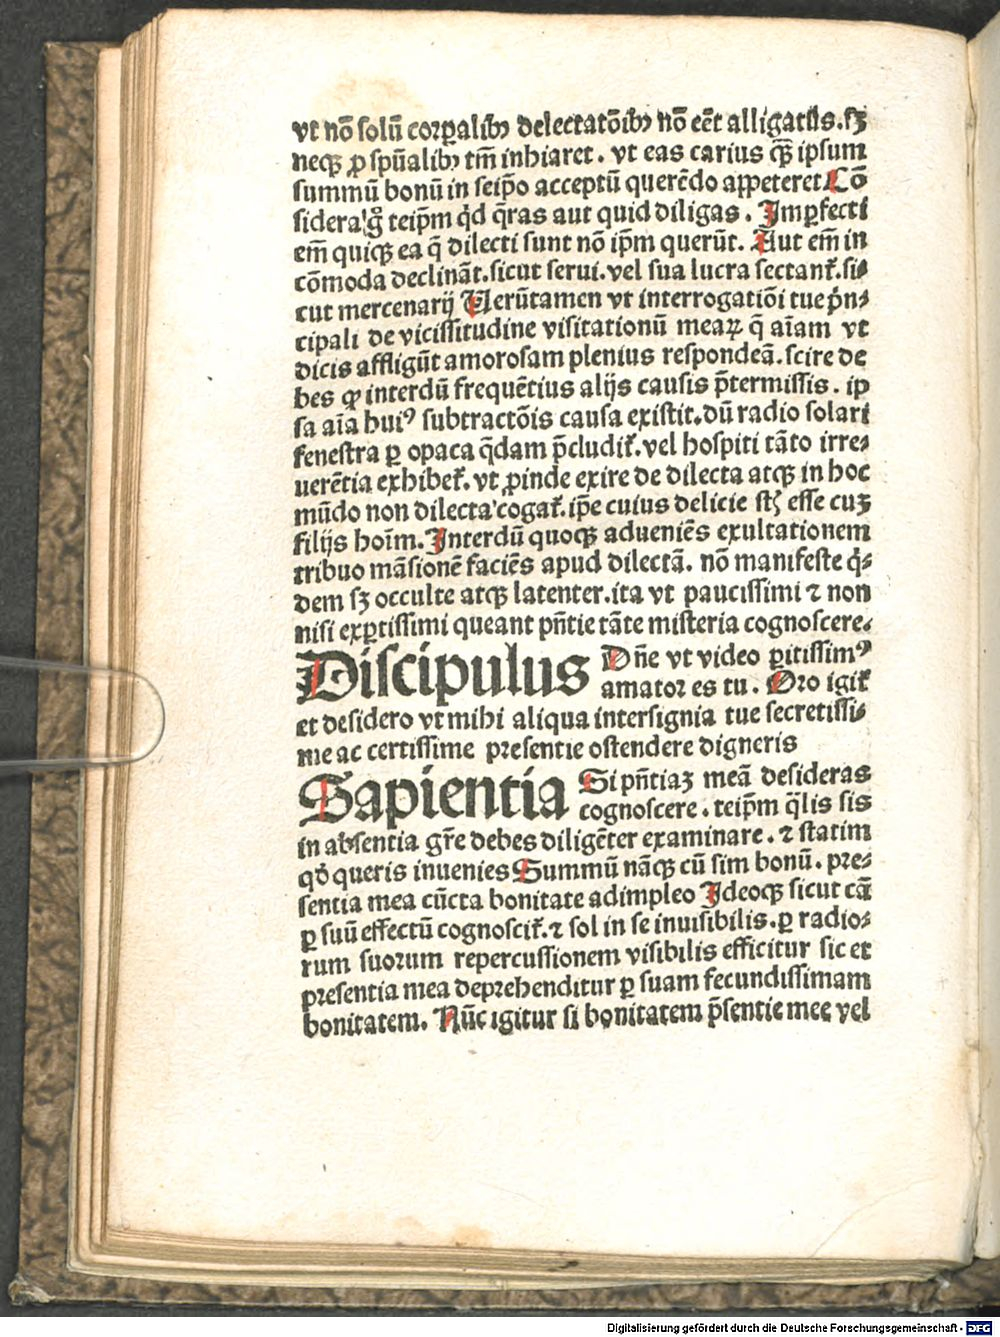 vt nō solū corꝑalibꝫ delectatōibꝫ nō eēt alligatus. sꝫ
neqꝫ ꝓ spūalibꝫ tm̄ inhiaret. vt eas carius qꝫ̄ ipsum
summū bonū in seip̄o acceptū querēdo appeteret Cō
sidera gͦ teip̄m qͥd q̄ras aut quid diligas. Imꝑfecti
em̄ quiqꝫ ea q̄ dilecti sunt nō ip̄m querūt. Aut em̄ in
cōmoda declināt. sicut serui. vel sua lucra sectant᷑. si⸗
cut mercenarij Uerūtamen vt interrogatiōi tue pͥn⸗
cipali de vicissitudine visitationū meaꝝ q̄ aīam vt
dicis affligūt amorosam plenius respondeā. scire de
bes ꝙ interdū frequētius alijs causis p̄termissis. ip
sa aīa huiꝰ subtractōis causa existit. dū radio solari
fenestra ꝑ opaca q̄dam p̄cludit᷑. vel hospiti tāto irre⸗
uerētia exhibet᷑. vt ꝓinde exire de dilecta atqꝫ in hoc
mūdo non dilecta cogat᷑. ip̄e cuius delicie st̄ esse cuꝫ
filijs hoīm. Interdū quoqꝫ adueniēs exultationem
tribuo māsionē faciēs apud dilectā. nō manifeste qͥ⸗
dem sꝫ occulte atqꝫ latenter. ita vt paucissimi ⁊ non
nisi exꝑtissimi queant pn̄tie tāte misteria cognoscere.
Discipulus Dn̄e vt video ꝑitissimꝰ
amator es tu. Oro igit᷑
et desidero vt mihi aliqua intersignia tue secretissi⸗
me ac certissime presentie ostendere digneris
Sapientia Si pn̄tiaꝫ meā desideras
cognoscere. teip̄m q̄lis sis
in absentia gr̄e debes diligēter examinare. ⁊ statim
qd̓ queris inuenies Summū nāqꝫ cū sim bonū. pre⸗
sentia mea cūcta bonitate adimpleo Ideoqꝫ sicut cā
ꝑ suū effectū cognoscit᷑. ⁊ sol in se inuisibilis. ꝑ radio⸗
rum suorum repercussionem visibilis efficitur sic et
presentia mea deprehenditur ꝑ suam fecundissimam
bonitatem. Nūc igitur si bonitatem p̄sentie mee vel
Digitalisierung gefördert durch die Deutsche Forschungsgemeinschaft - DFG